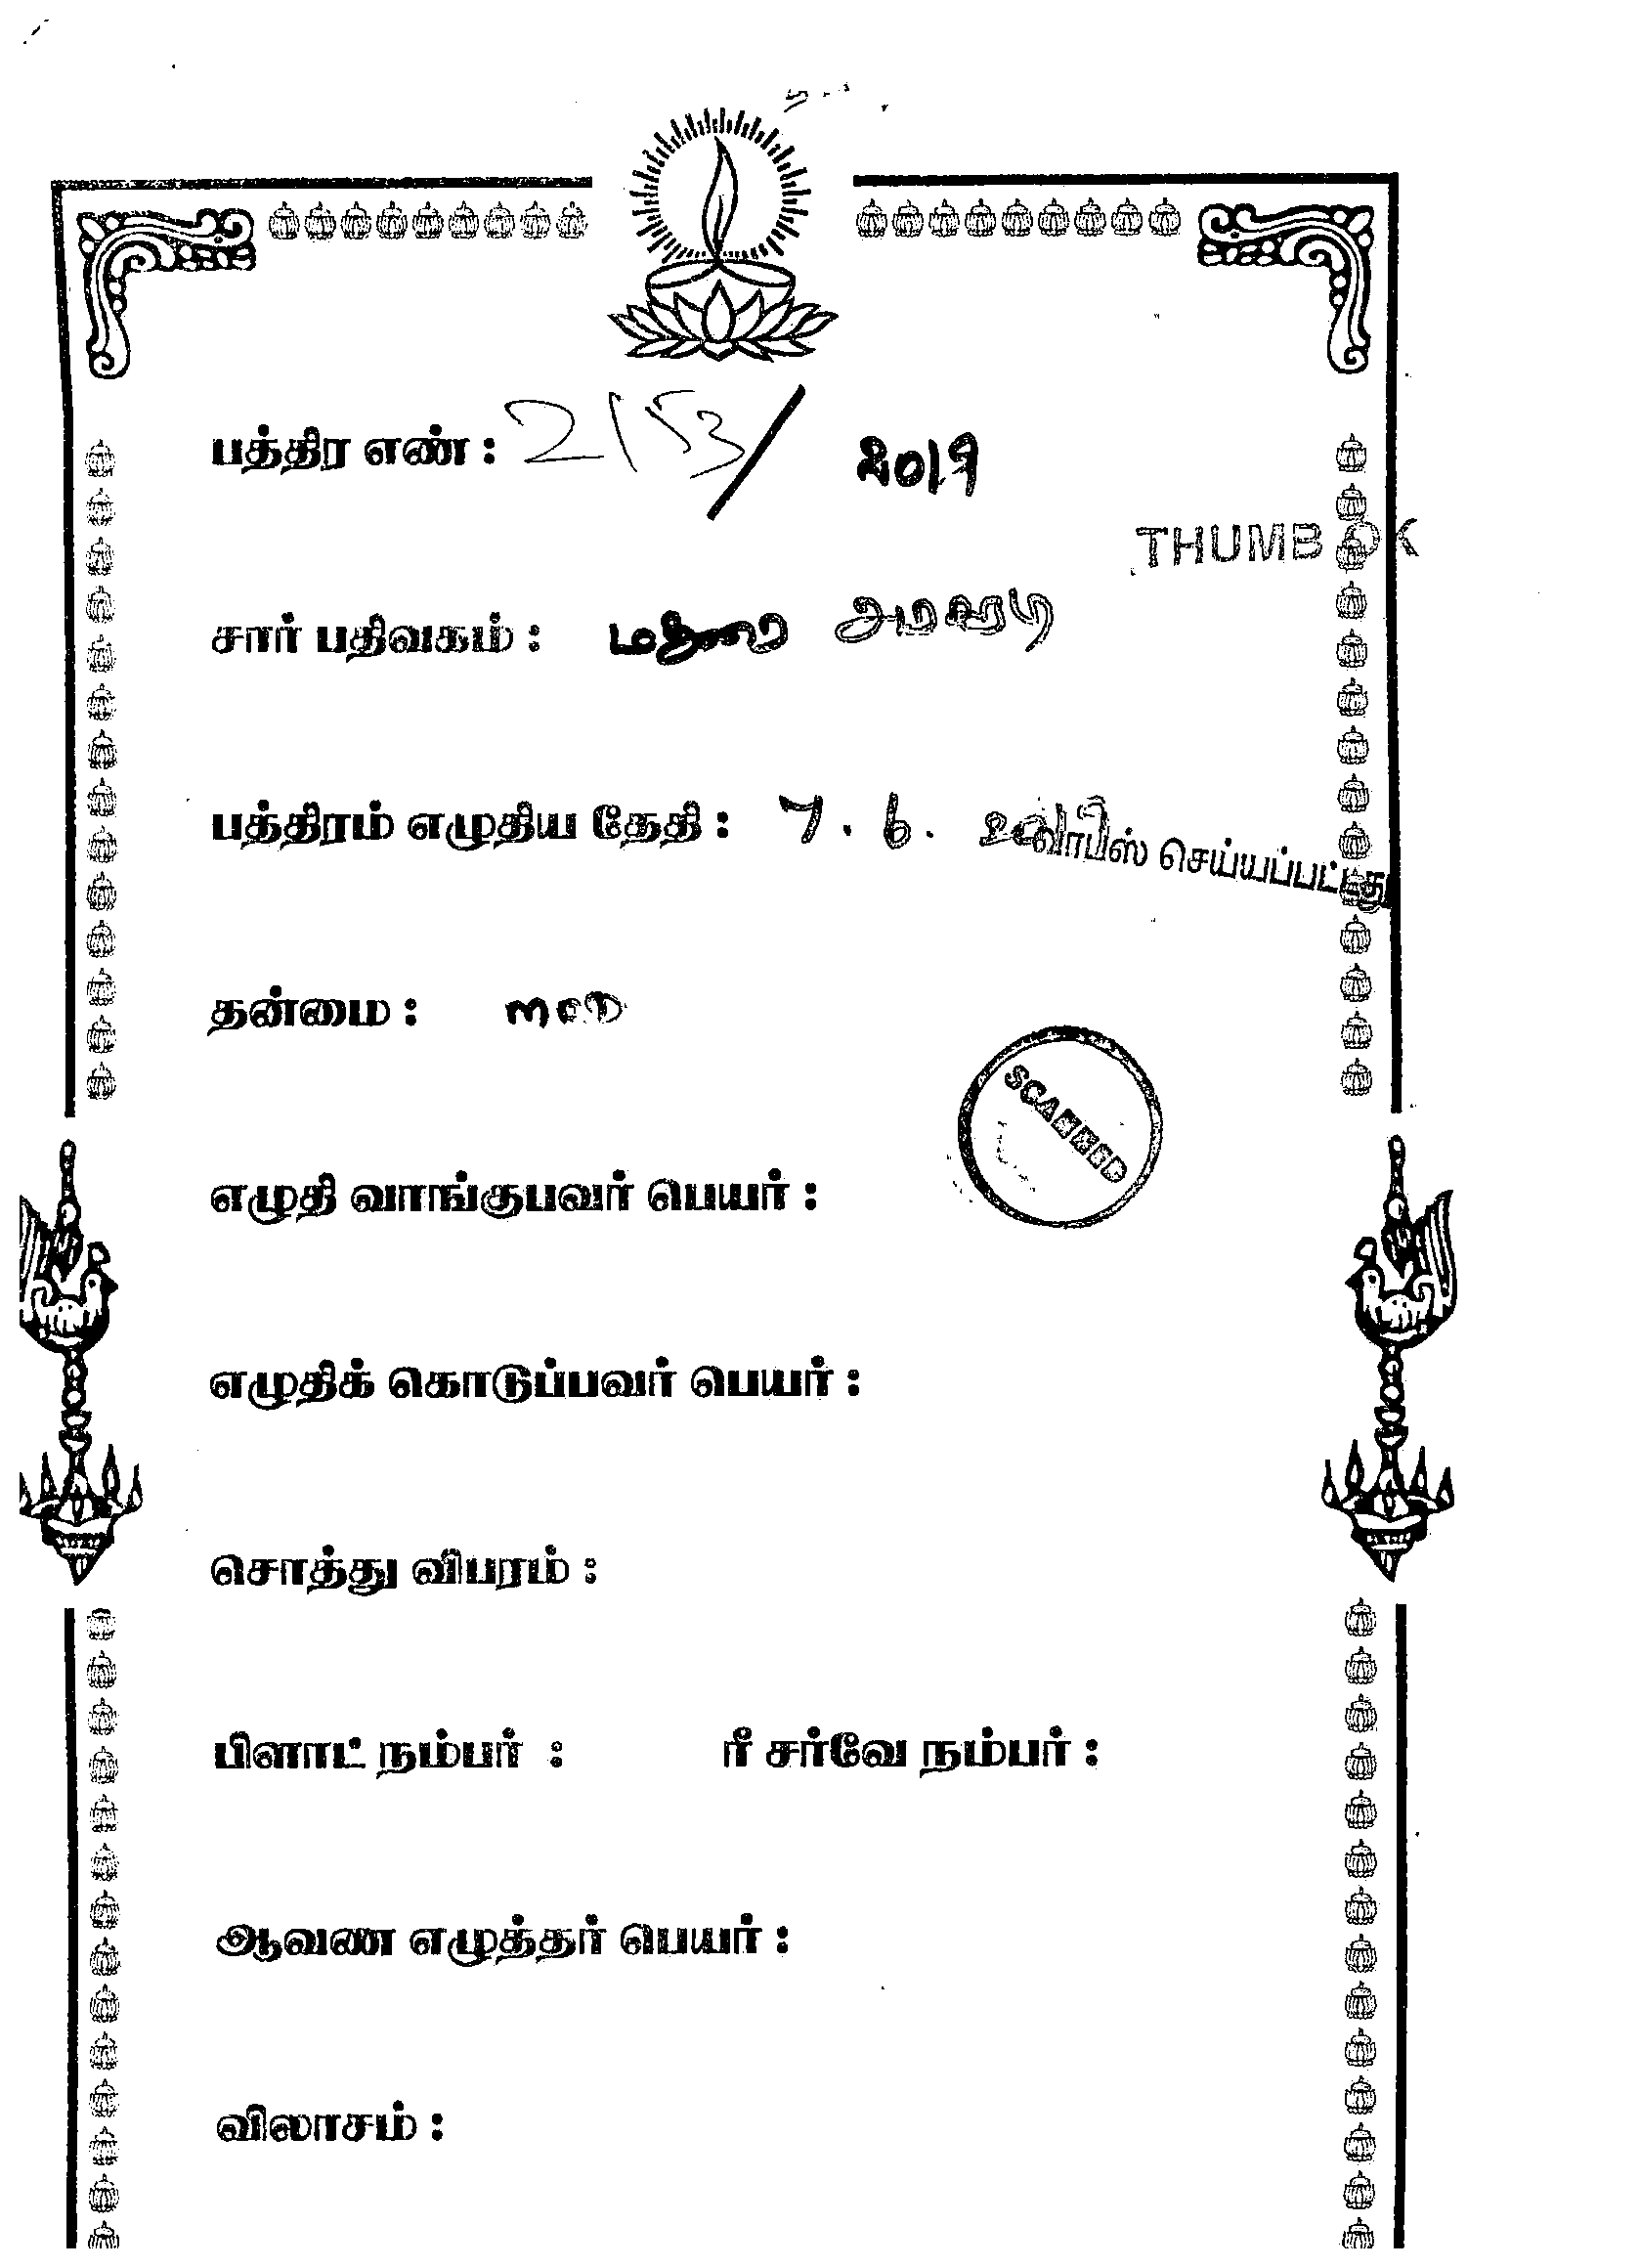 பத்திர எண் : 2153/ 2019
THUMB OK
சார் பதிவகம் : மதுரை
பத்திரம் எழுதிய தேதி : 7.6.
வாபீஸ் செய்யப்பட்டது
தன்மை : MOD
SCANNED
எழுதி வாங்குபவர் பெயர் :
எழுதிக் கொடுப்பவர் பெயர் :
சொத்து விபரம் :
பிளாட் நம்பர் : ரீ சர்வே நம்பர் :
ஆவண எழுத்தர் பெயர் :
விலாசம் :